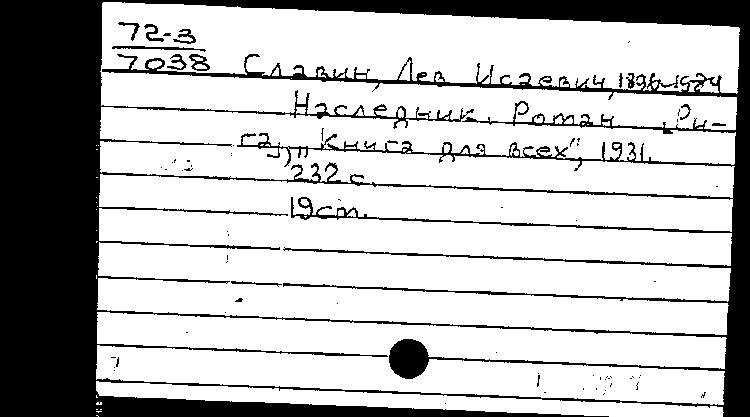 72-3
7038
Славин, Лев Исаевич, 1896-1984
Наследник. Роман. [Ри-
га,] „Книга для всех", 1931.
232 с.
19 cm.